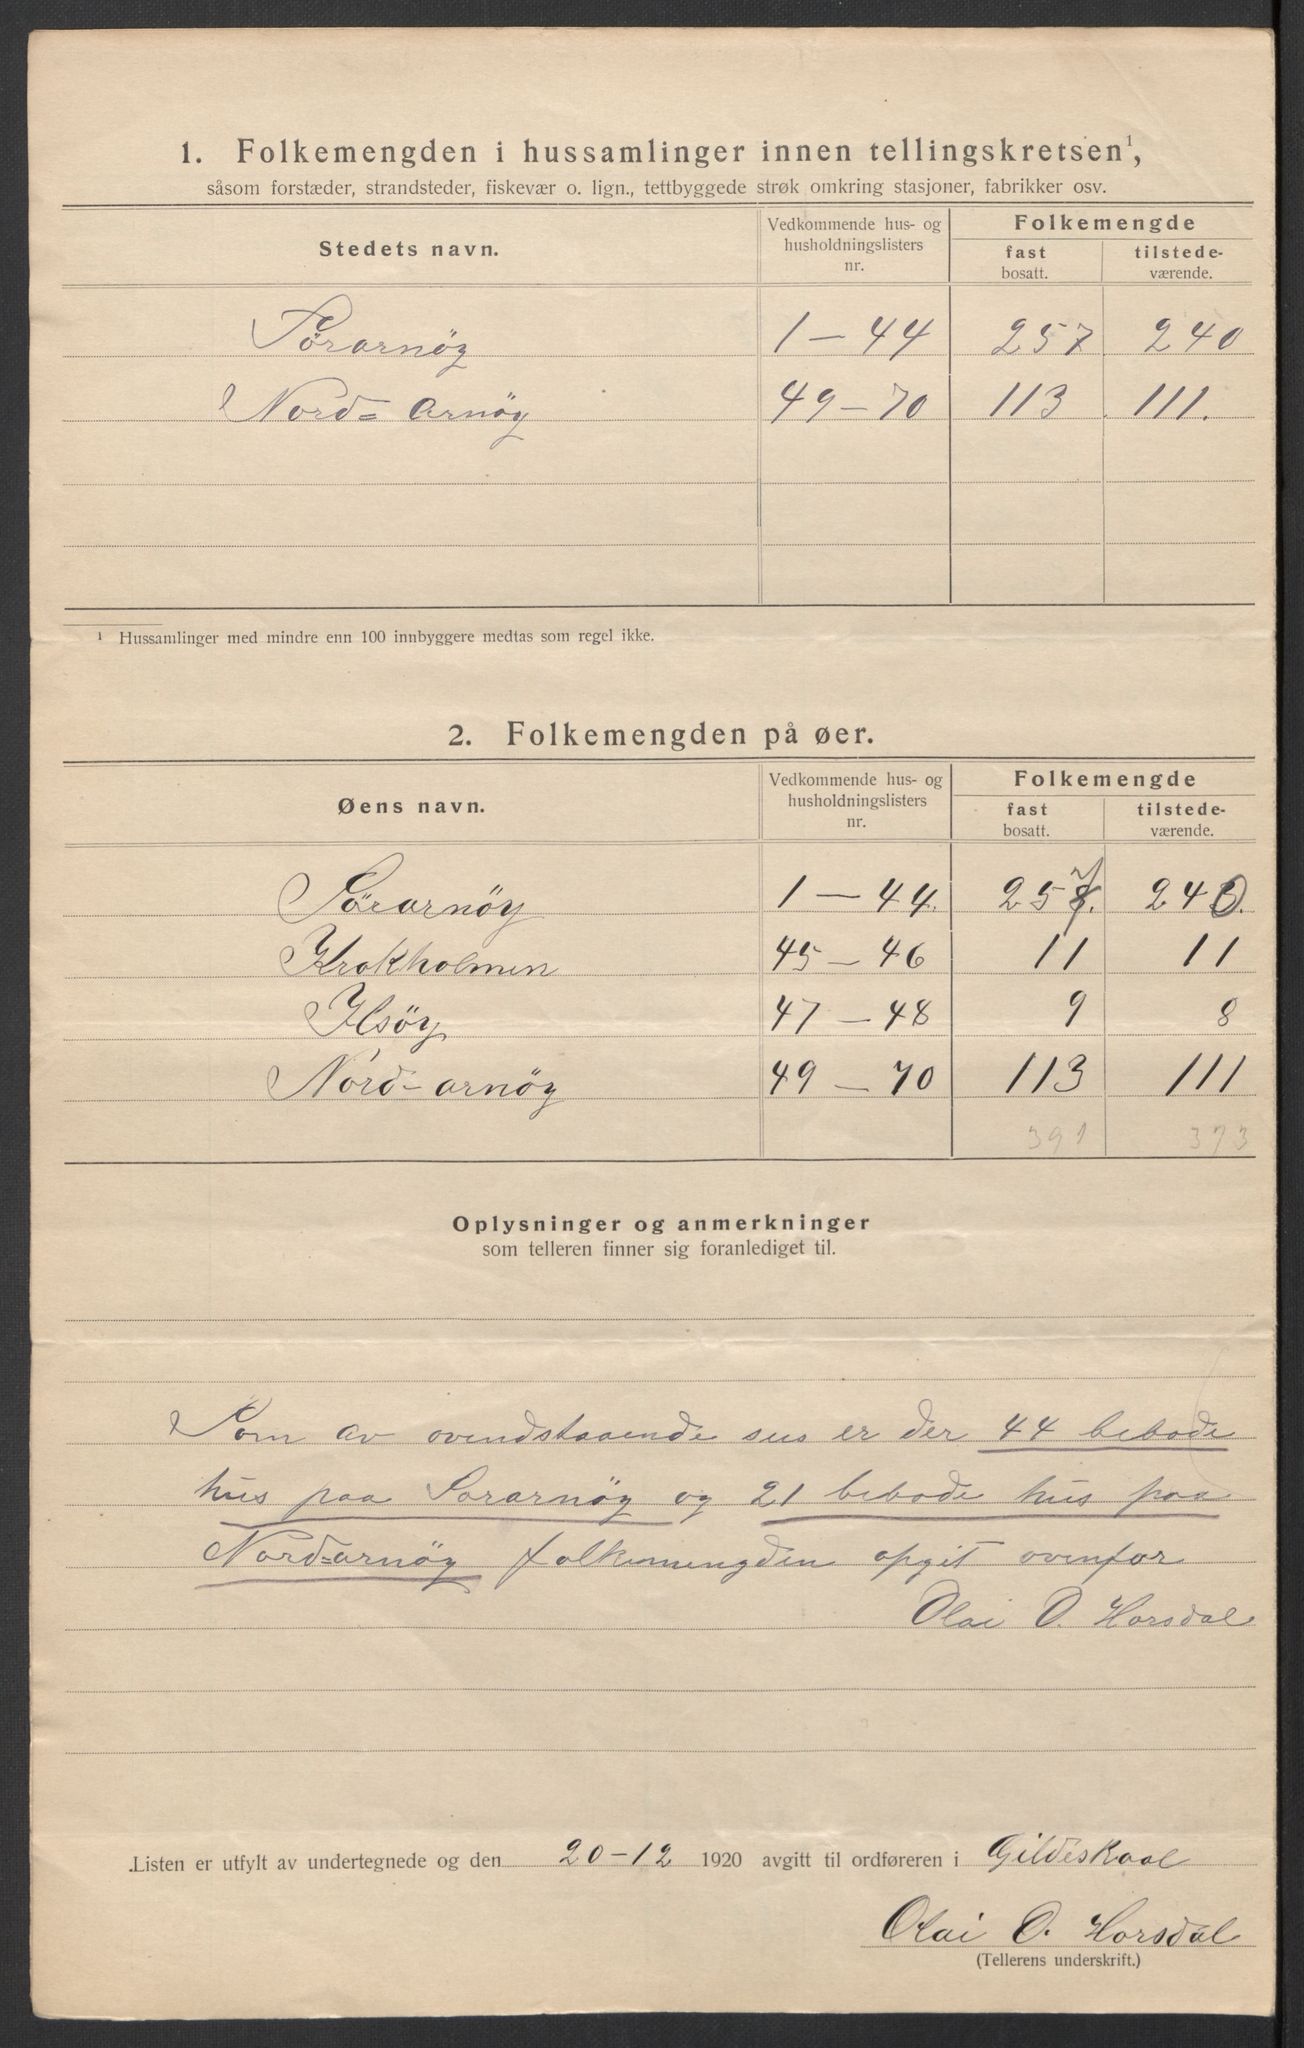 1. Folkemengden i hussamlinger innen tellingskretsen¹,
såsom forstæder, strandsteder, fiskevær o. lign., tettbyggede strøk omkring stasjoner, fabrikker osv.
Stedets navn. Vedkommende hus- og husholdningslisters nr. Folkemengde
fast bosatt. tilstede-værende.
Sørarnöy 1 – 44 257 240
Nord= Arnöy 49 – 70 113 111.
¹ Hussamlinger med mindre enn 100 innbyggere medtas som regel ikke.
2. Folkemengden på øer.
Øens navn. Vedkommende hus- og husholdningslisters nr. Folkemengde
fast bosatt. tilstede-værende.
Sørarnöy 1 – 44. 257. 240.
Krokholmen 45 – 46 11 11
Ilsöy 47 – 48 9 8
Nord-arnöy 49 – 70 113 111
391 373
Oplysninger og anmerkninger
som telleren finner sig foranlediget til.
Som av ovenstaaende sees er der 44 bebode
hus paa Sørarnöy og 21 bebode hus paa
Nord=arnöy folkemengden opgit ovenfor
Olai O. Horsdal
Listen er utfylt av undertegnede og den 20-12 1920 avgitt til ordføreren i Gildeskaal
Olai O. Horsdal
(Tellerens underskrift.)